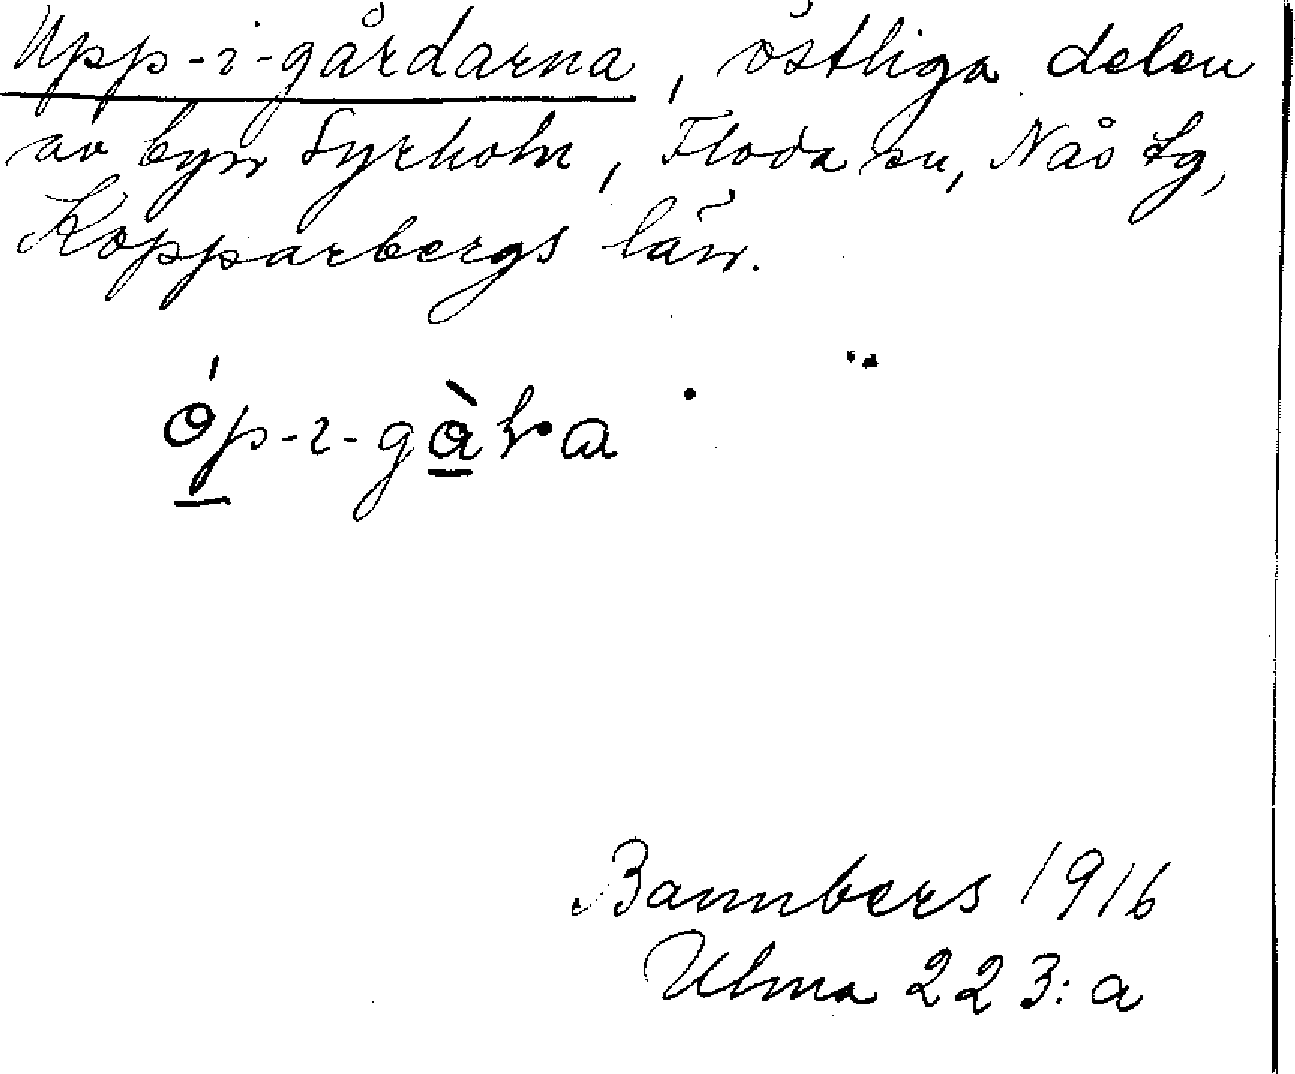 Upp-i-gårdarna, östliga delen
av byn Syrholn, Floda sn, Nås tg,
Kopparbergs län.
óp-i-gàra
Bannbers 1916
Ulma 223:a